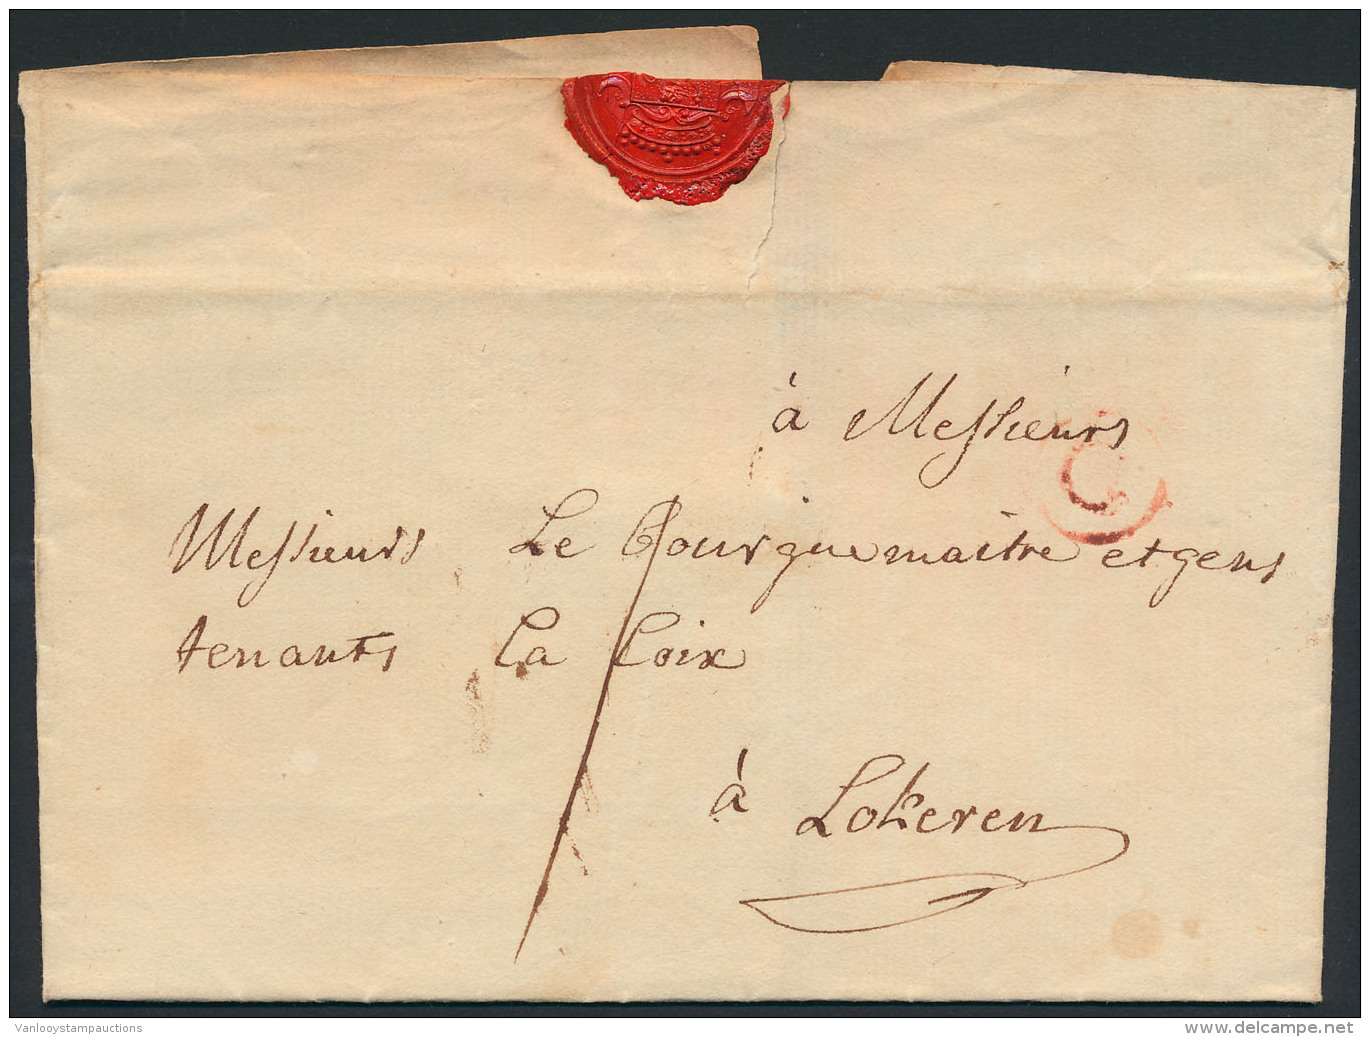 à Messieurs
Messieurs Le Bourguemaitre et gens
tenants La Loix
à Lokeren
Vanlooystampauctions
www.delcampe.net